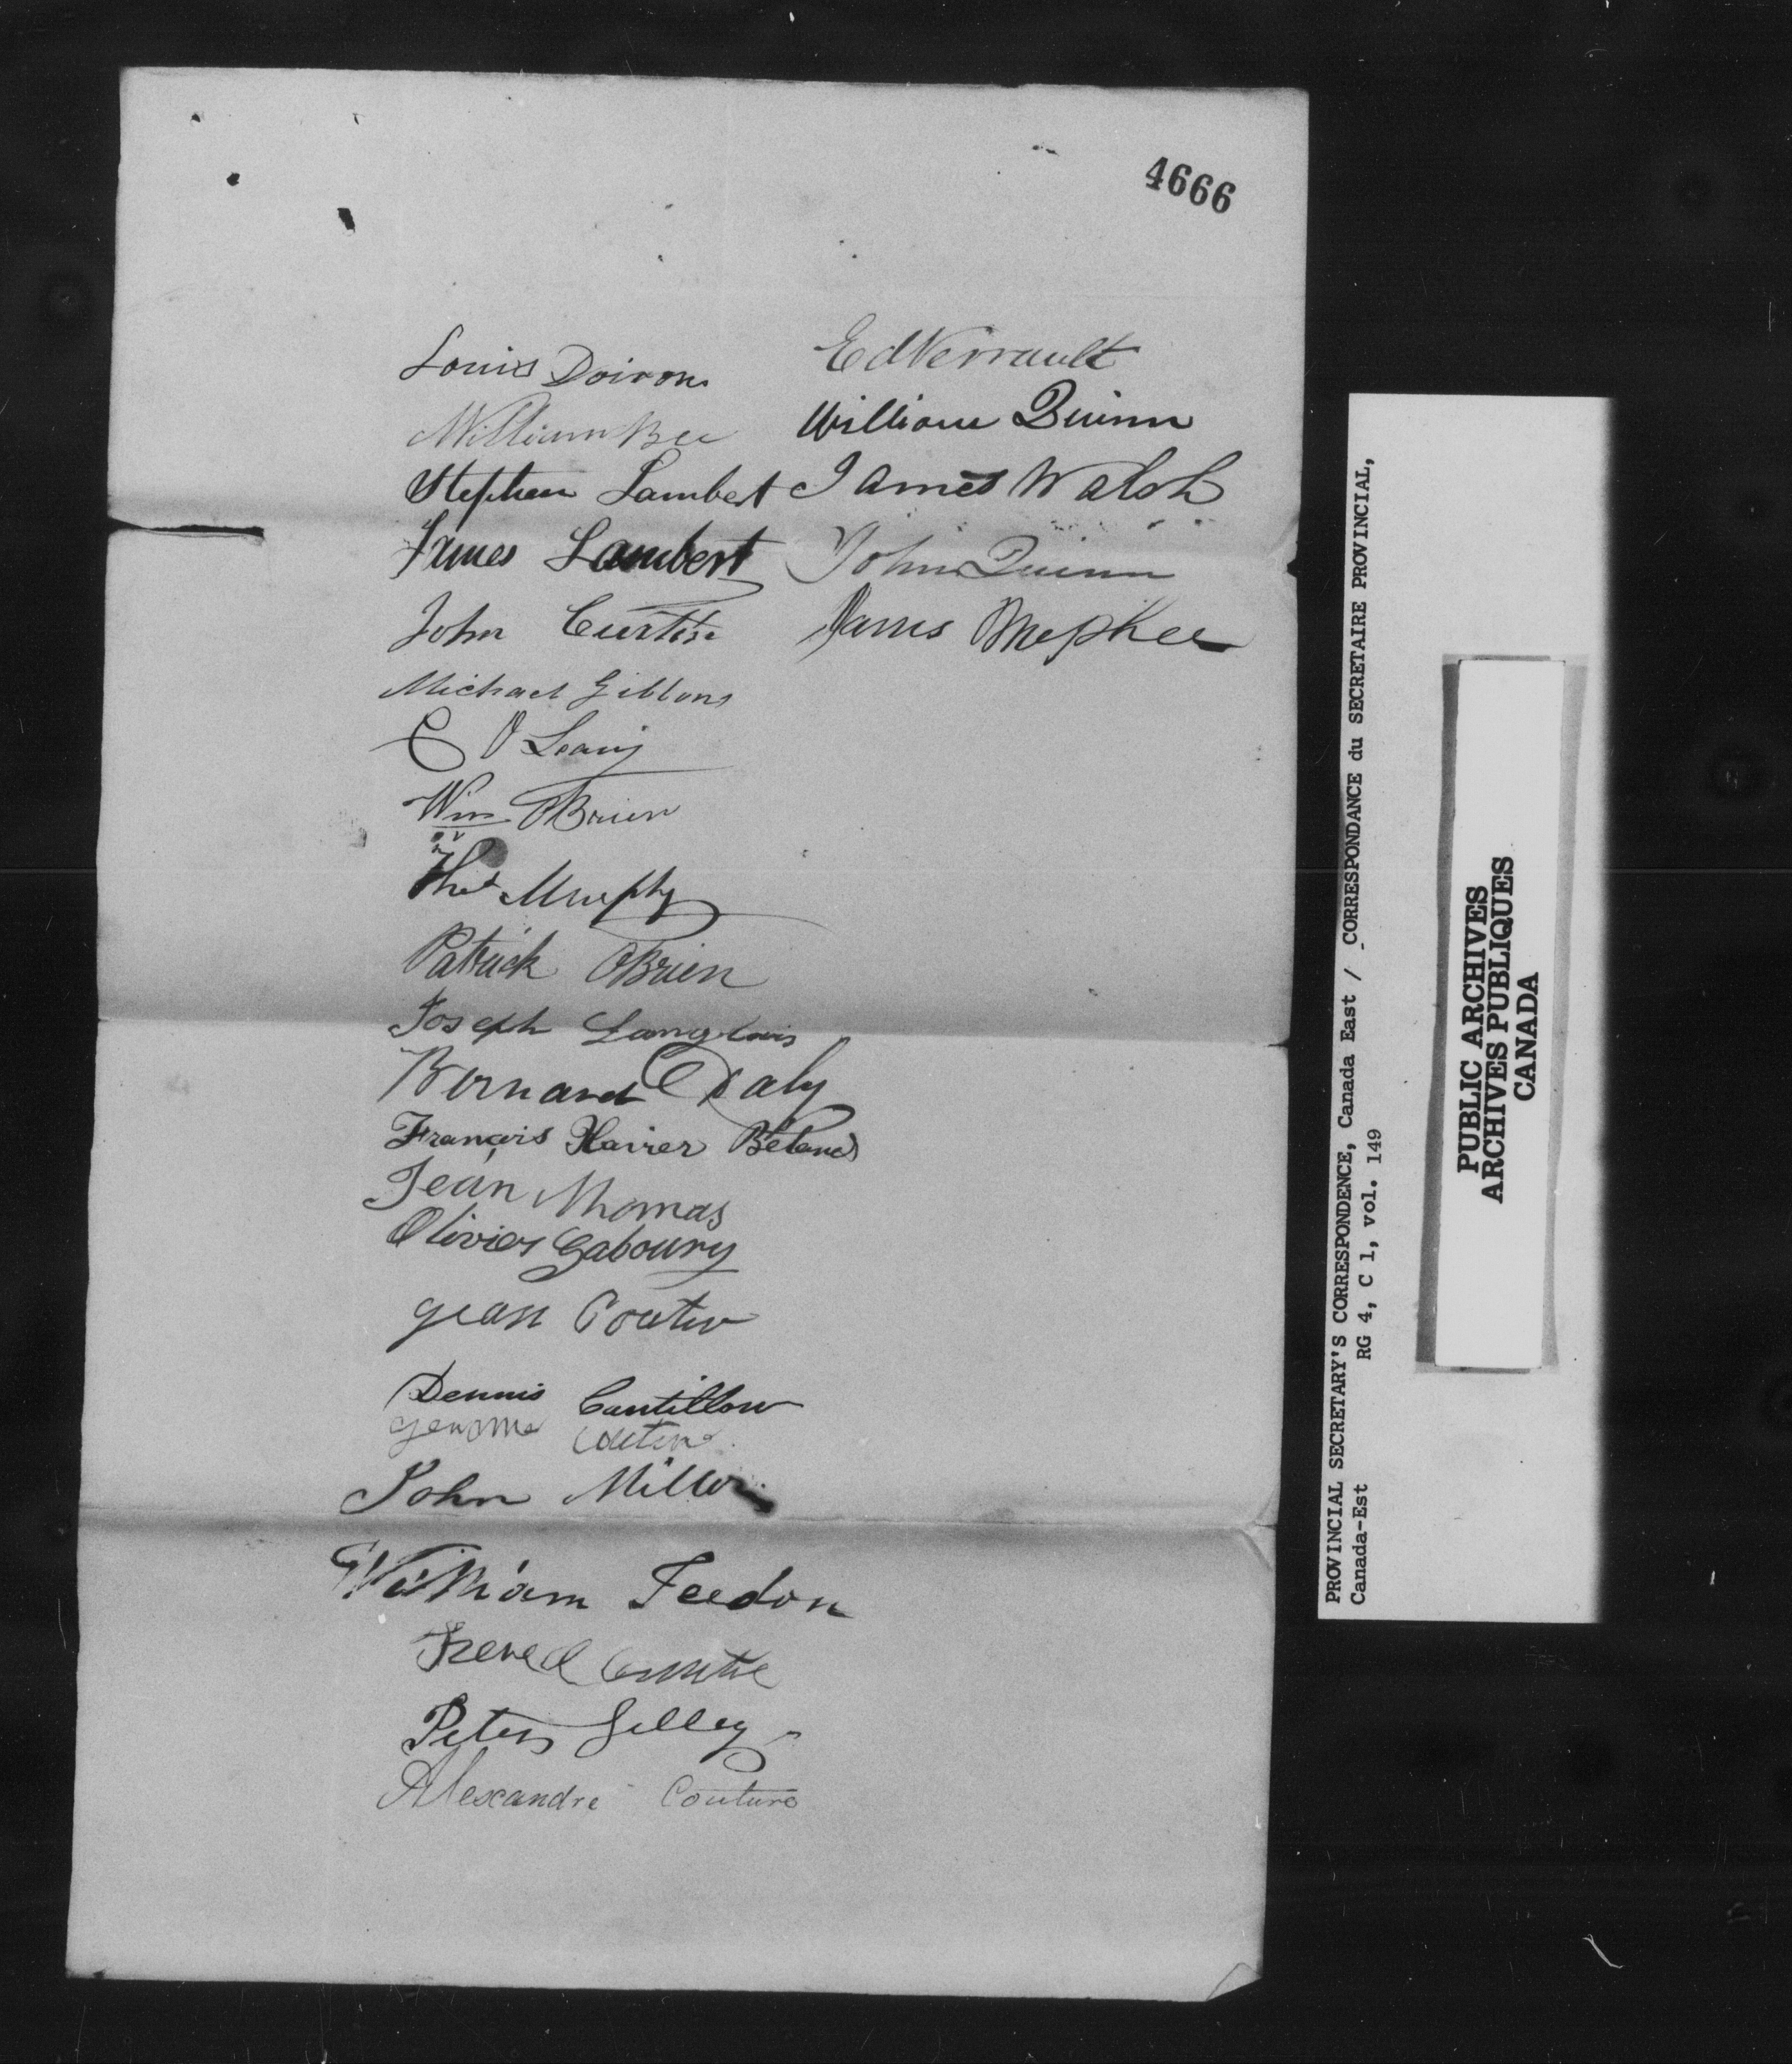 4666
Louis Doiron
William Bee
Stephen Lambert
James Lambert
John Curtin
Michael Gibbons
C O Leary
Wm OBrien
Thos Murphy
Patrick OBrien
Joseph Langlois
Bernard Daly
François Xavier Béland
Jean Thomas
Olivier Gaboury
Jean
Dennis Cantillon
John Miller
William Feedon
Peter Gilley
Alexandre Couture
Ed Verrault
William Quinn
James Walsh
John Quinn
James McPhee
PROVINCIAL SECRETARY'S CORRESPONDENCE, Canada East / CORRESPONDANCE du SECRETAIRE PROVINCIAL,
Canada-Est RG 4, C 1, vol. 149
PUBLIC ARCHIVES
ARCHIVES PUBLIQUES
CANADA